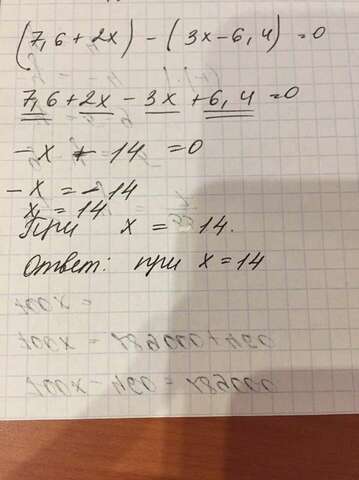 (7,6 + 2x) - (3x - 6,4) = 0
7,6 + 2x - 3x + 6,4 = 0
- x + 14 = 0
- x = - 14
x = 14
При x = 14.
Ответ: при x = 14